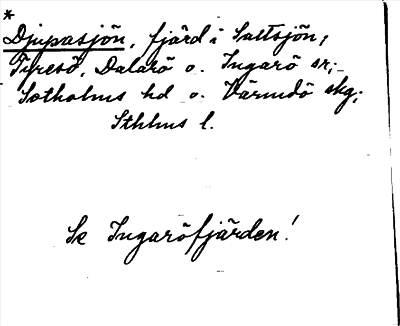 *
Djupasjön, fjärd i Saltsjön;
Tyresö, Dalarö o. Ingarö sr;
Sotholms hd o. Värmdö skg;
Sthlms l.
Se Ingaröfjärden!